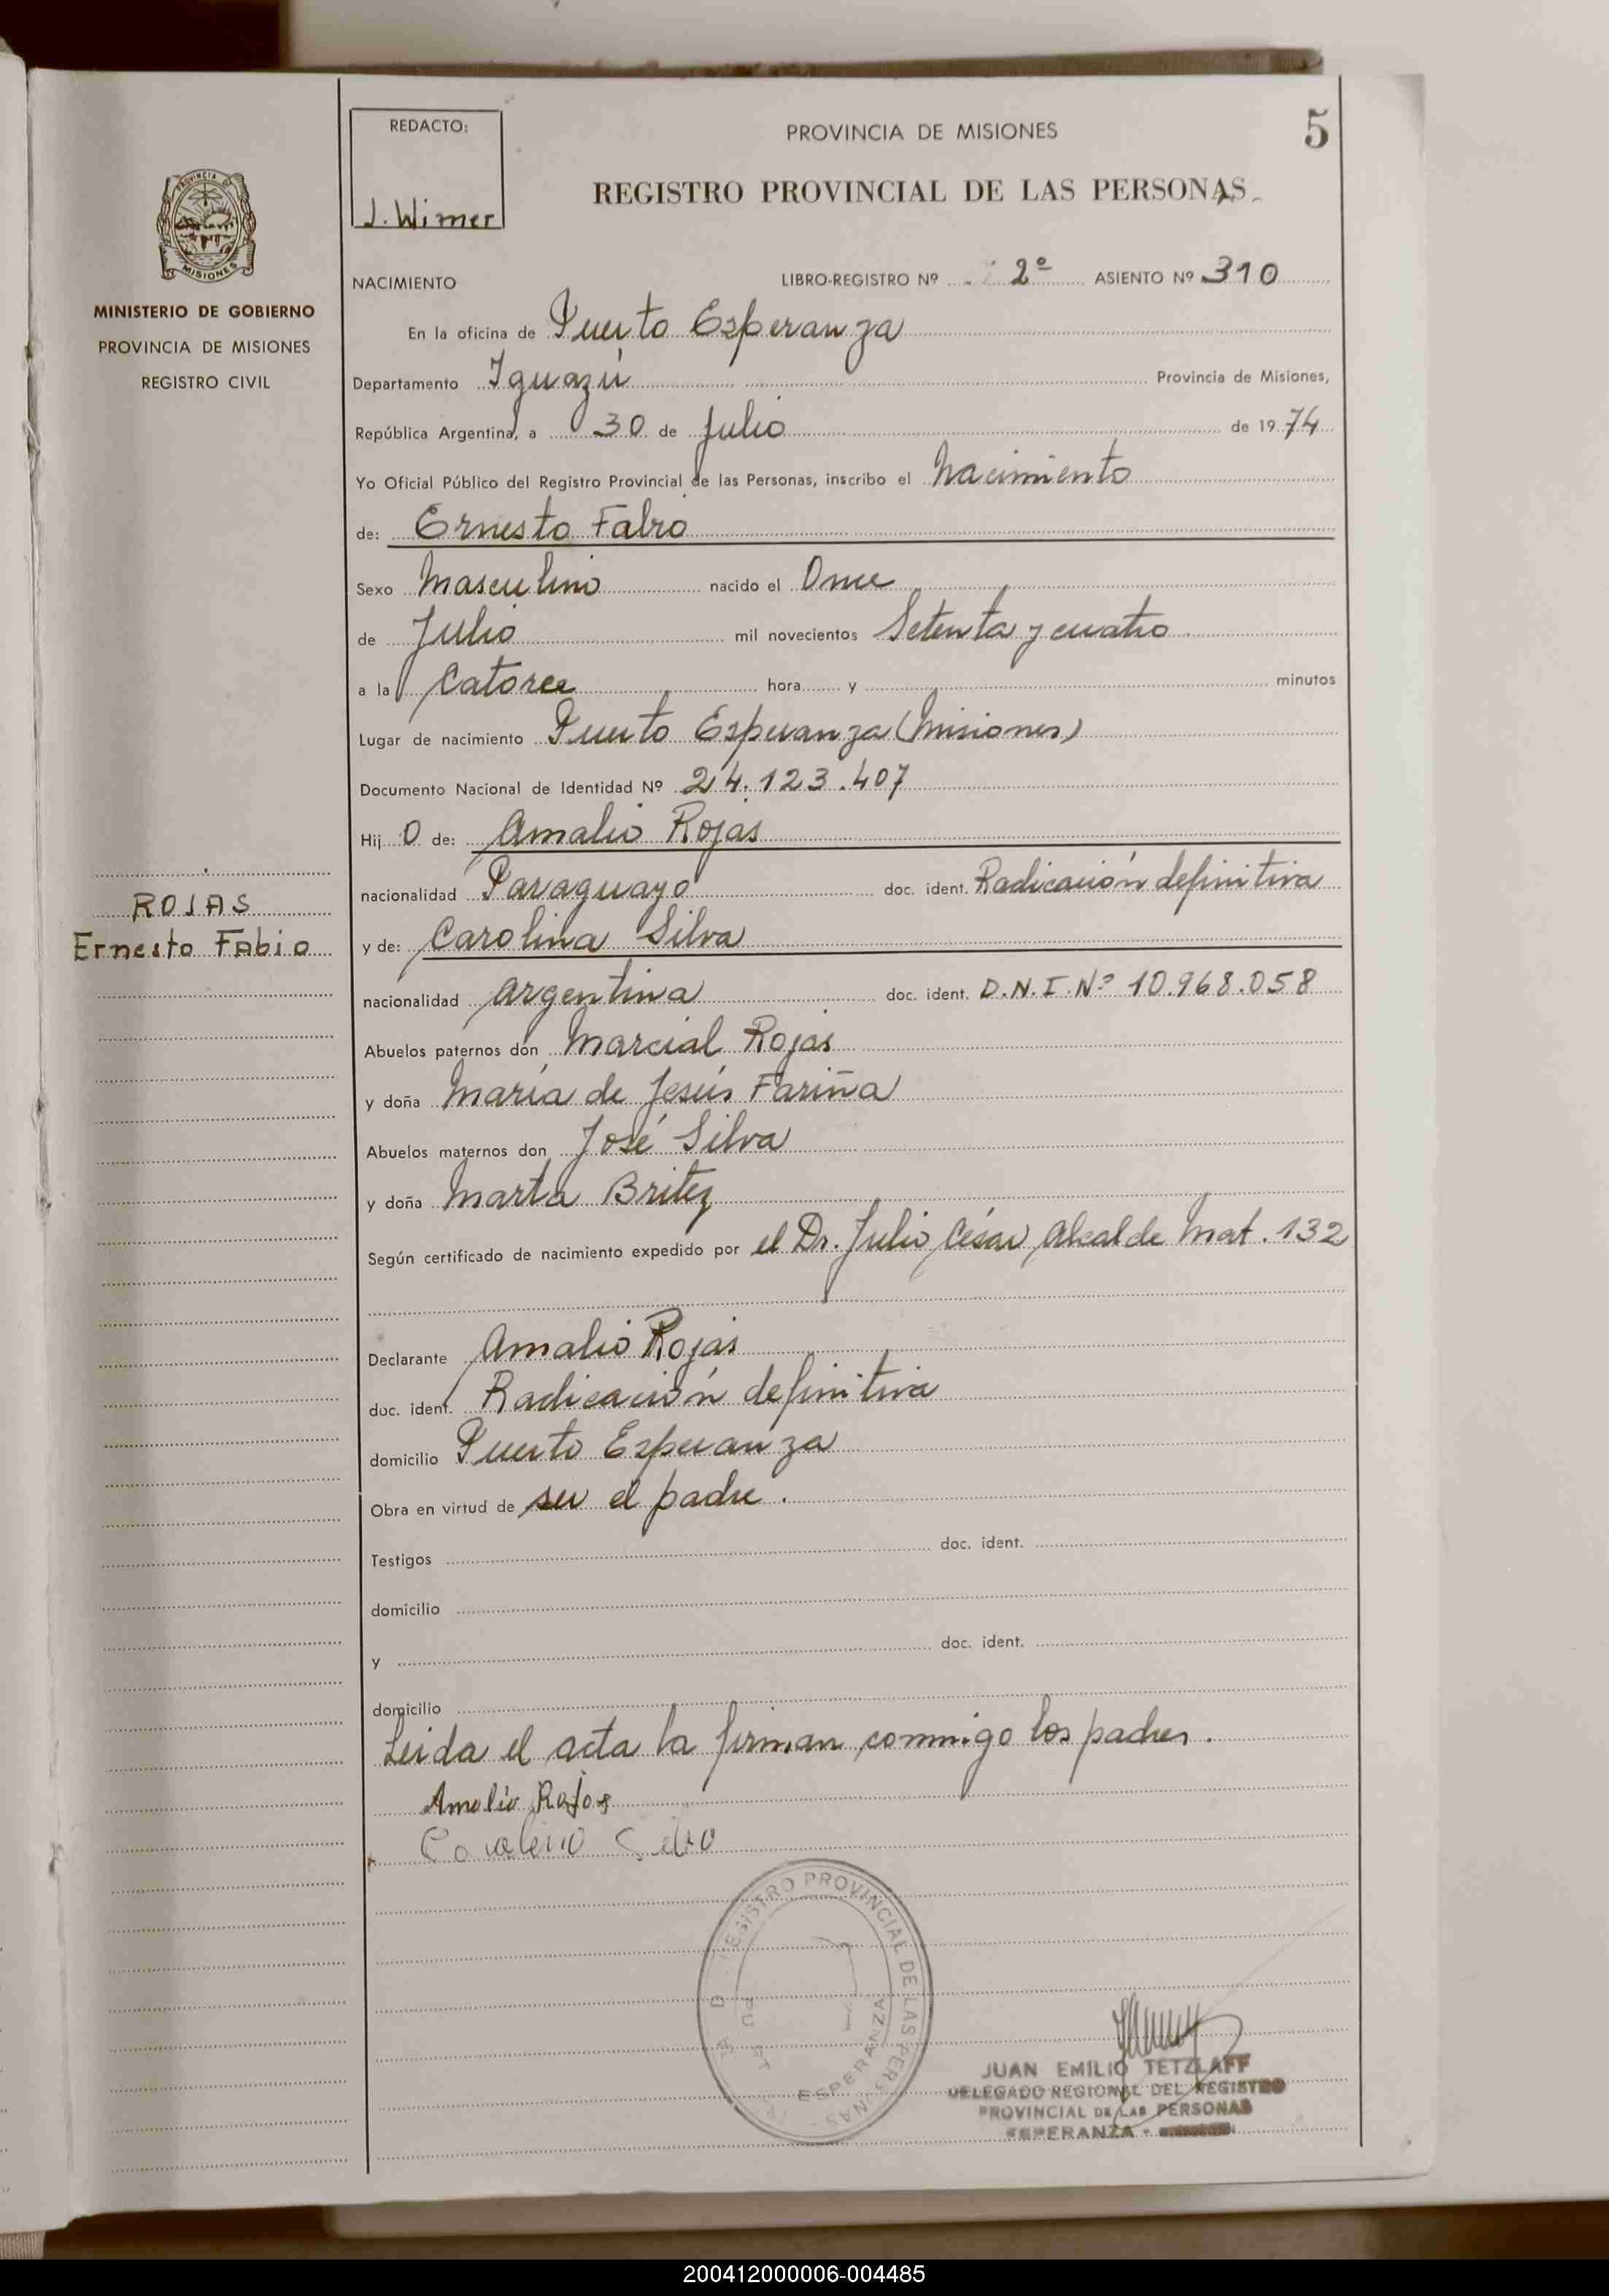 REDACTO:
J. Wimer
PROVINCIA DE MISIONES
5
REGISTRO PROVINCIAL DE LAS PERSONAS
PROVINCIA DE MISIONES
MINISTERIO DE GOBIERNO
PROVINCIA DE MISIONES
REGISTRO CIVIL
ROJAS
Ernesto Fabio
NACIMIENTO LIBRO-REGISTRO Nº 2º ASIENTO Nº 310
En la oficina de Puerto Esperanza
Departamento Iguazú Provincia de Misiones,
República Argentina, a 30 de Julio de 1974
Yo Oficial Público del Registro Provincial de las Personas, inscribo el Nacimiento
de: Ernesto Fabio
Sexo Masculino nacido el Once
de Julio mil novecientos Setenta y cuatro
a la Catorce hora y minutos
Lugar de nacimiento Puerto Esperanza (Misiones)
Documento Nacional de Identidad Nº 24.123.407
Hij o de: Amalio Rojas
nacionalidad Paraguayo doc. ident. Radicación definitiva
y de: Carolina Silva
nacionalidad Argentina doc. ident. D.N.I.Nº 10.968.058
Abuelos paternos don Marcial Rojas
y doña María de Jesús Fariña
Abuelos maternos don José Silva
y doña Marta Britez
Según certificado de nacimiento expedido por el Dr. Julio César Alcalde Mat. 132
Declarante Amalio Rojas
doc. ident. Radicación definitiva
domicilio Puerto Esperanza
Obra en virtud de ser el padre.
Testigos doc. ident.
domicilio
y doc. ident.
domicilio
Leida el acta la firman conmigo los padres.
Amalio Rojas
Carolina Silva
REGISTRO PROVINCIAL DE LAS PERSONAS
ESPERANZA
JUAN EMILIO TETZLAFF
DELEGADO REGIONAL DEL REGISTRO
PROVINCIAL DE LAS PERSONAS
ESPERANZA -
200412000006-004485